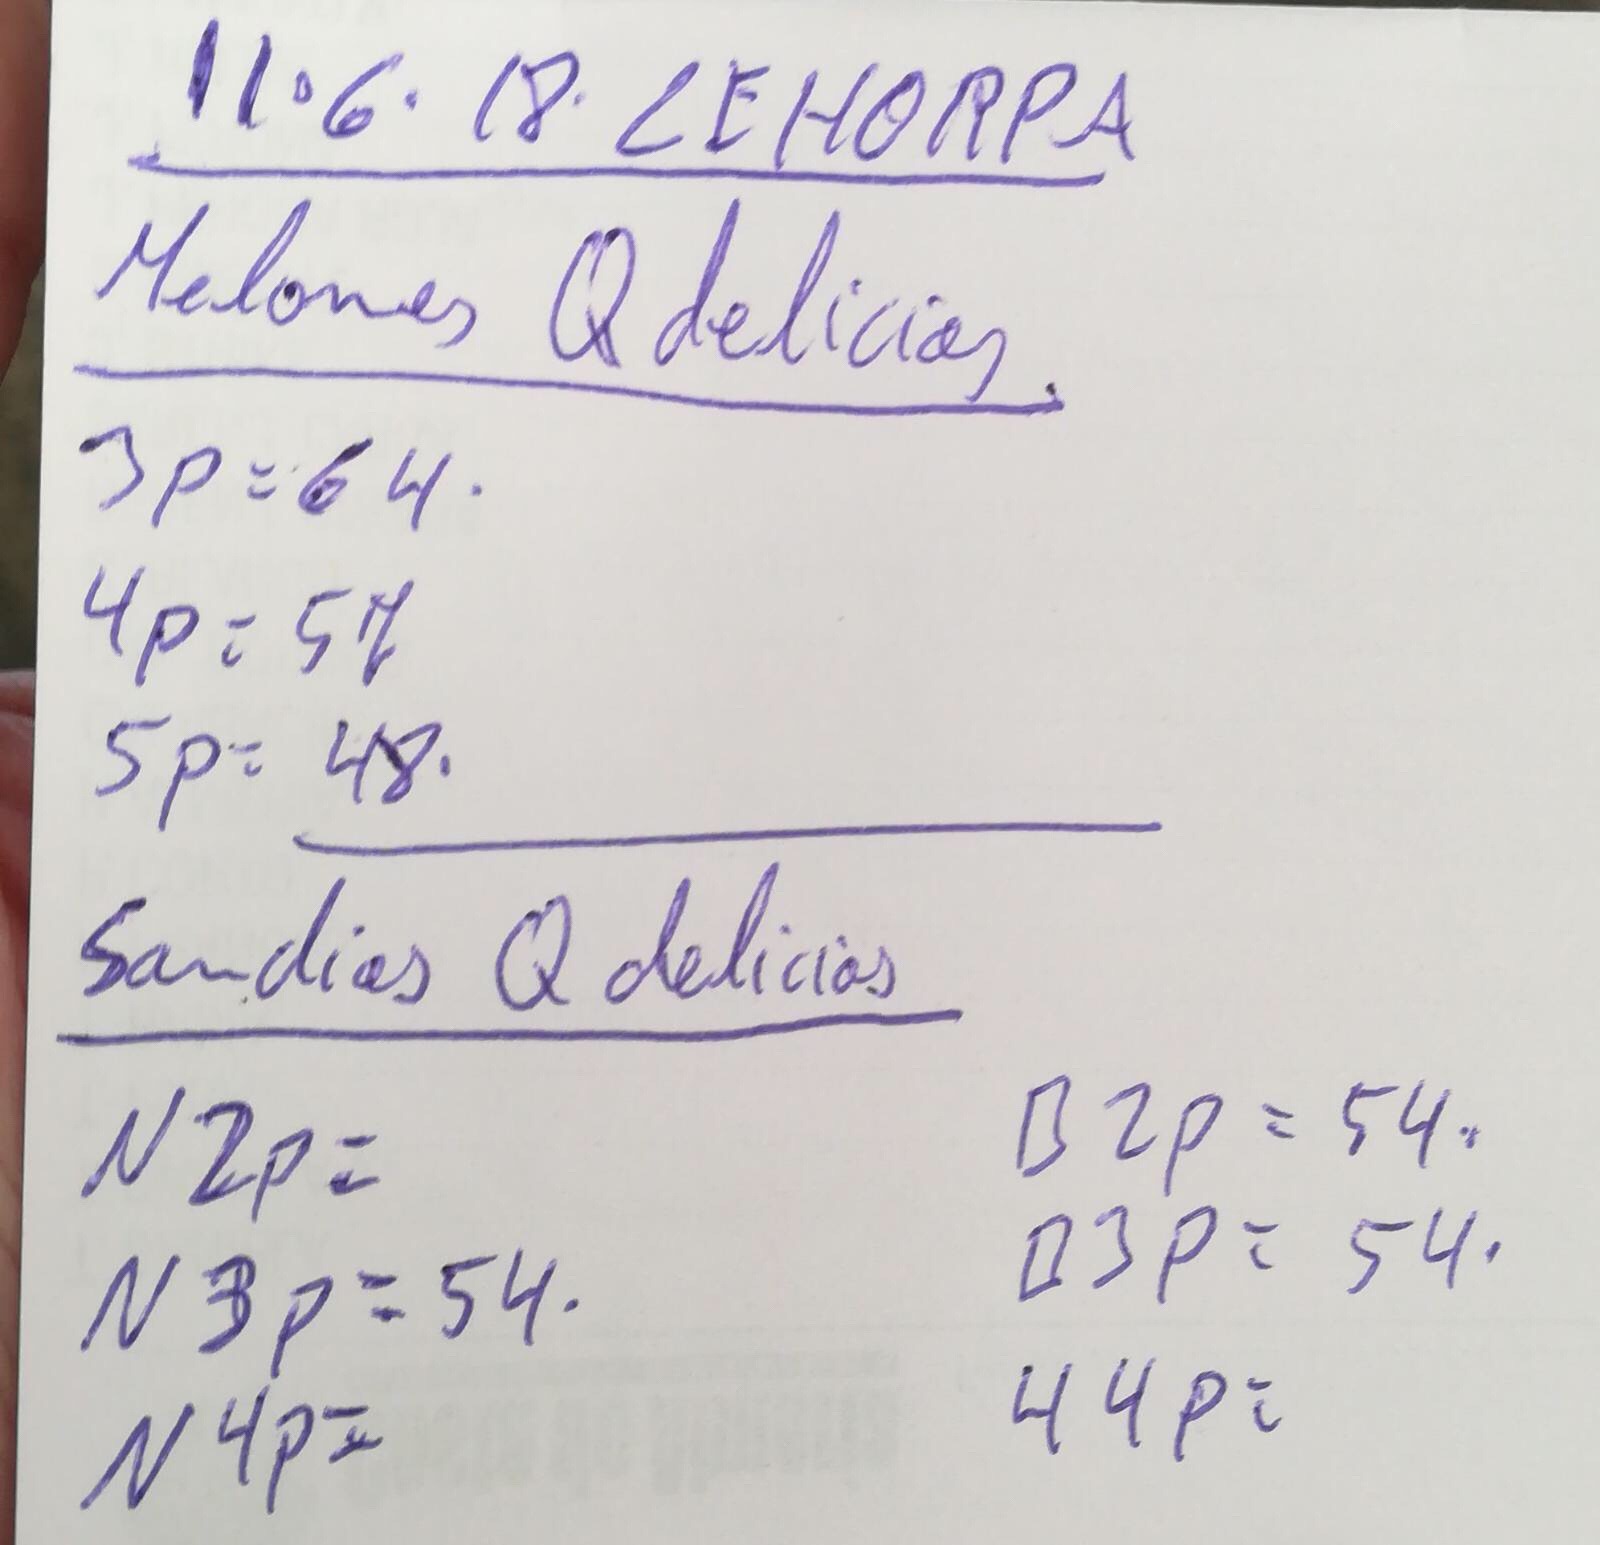 11.6.18. CEHORPA
Melones Q delicias.
3p=64.
4p=57
5p=48.
Sandias Q delicias
N2p=
B2p=54.
N3p=54.
B3p=54.
N4p=
44p=